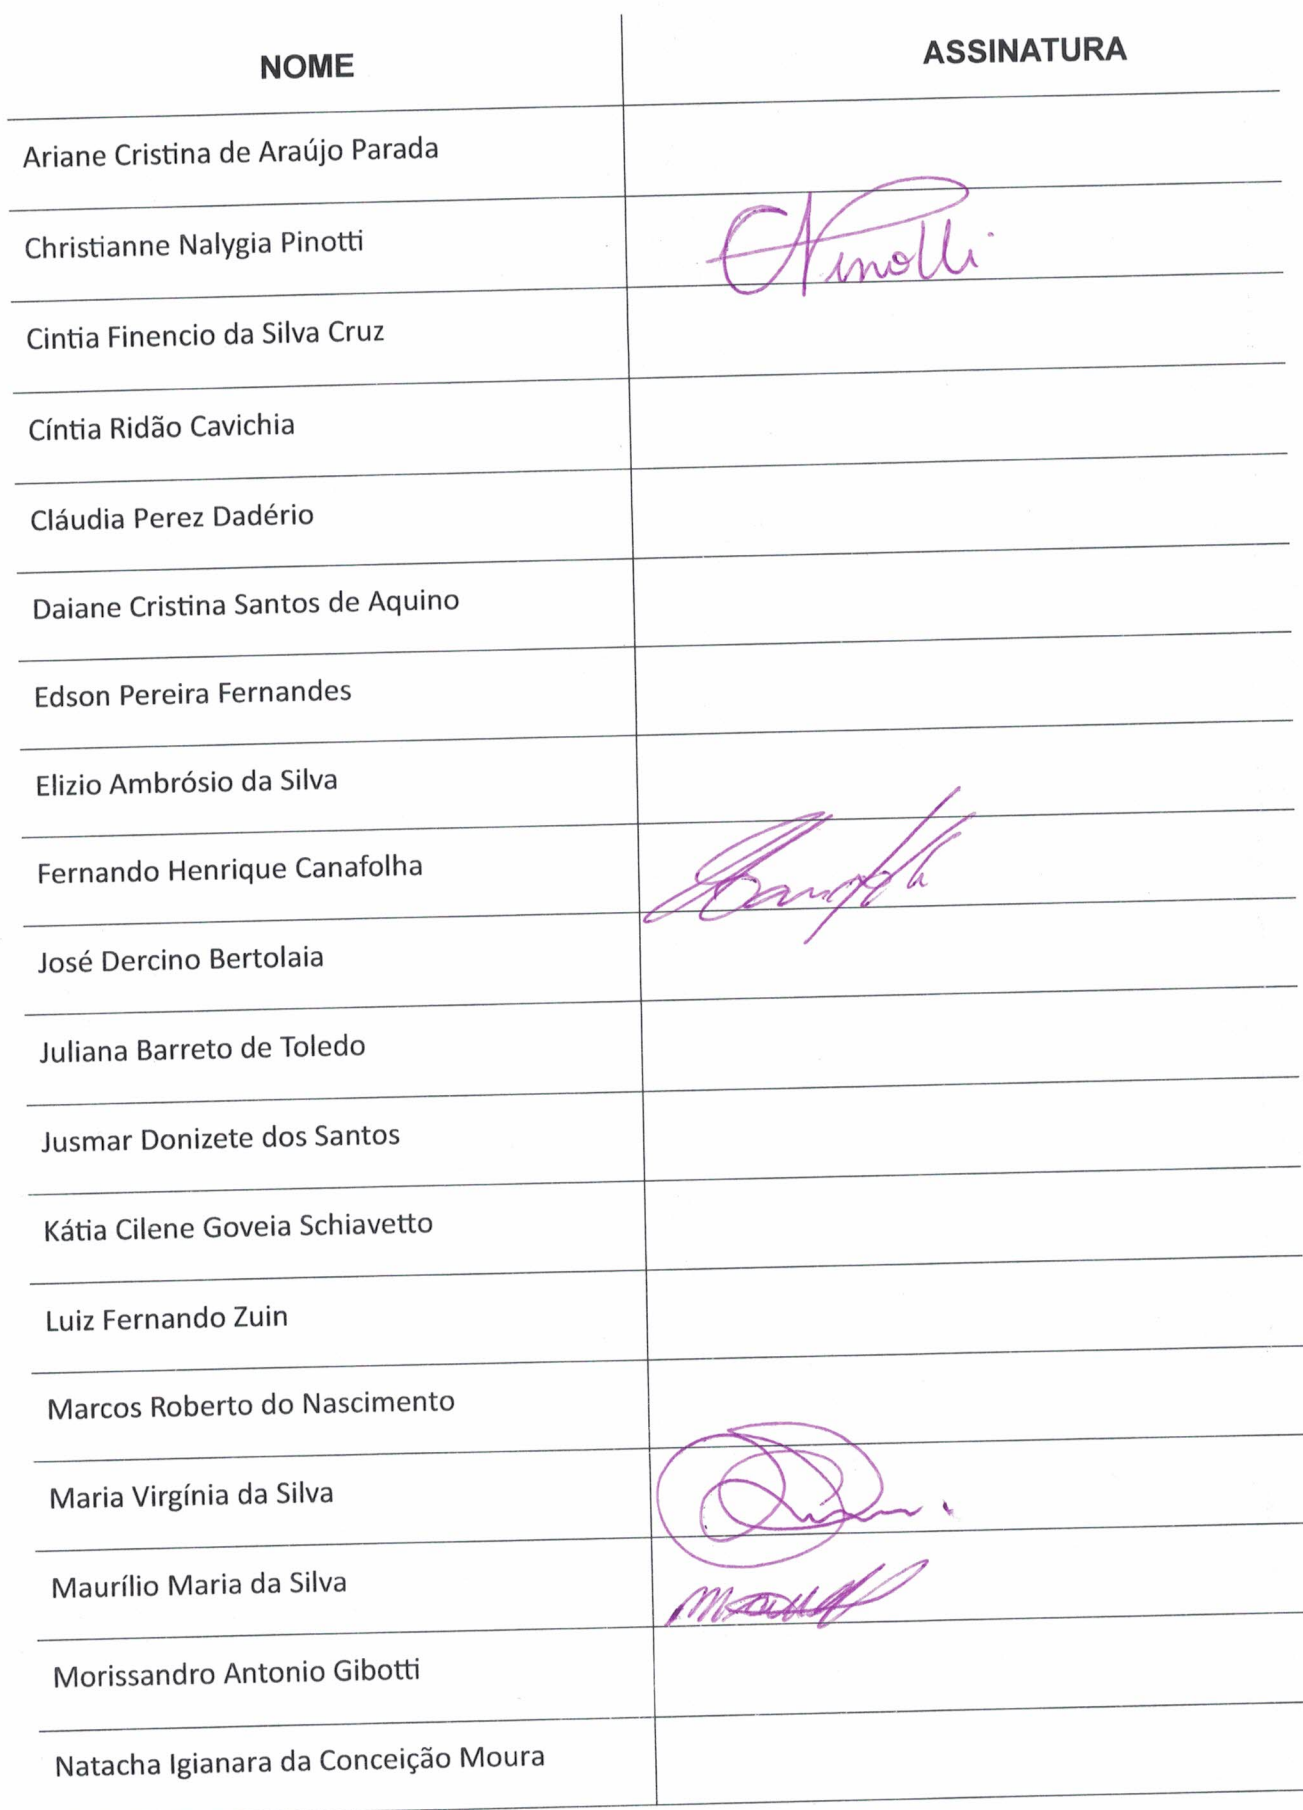 NOME ASSINATURA
Ariane Cristina de Araújo Parada
Christianne Nalygia Pinotti
Cintia Finencio da Silva Cruz
Cíntia Ridão Cavichia
Cláudia Perez Dadério
Daiane Cristina Santos de Aquino
Edson Pereira Fernandes
Elizio Ambrósio da Silva
Fernando Henrique Canafolha
José Dercino Bertolaia
Juliana Barreto de Toledo
Jusmar Donizete dos Santos
Kátia Cilene Goveia Schiavetto
Luiz Fernando Zuin
Marcos Roberto do Nascimento
Maria Virgínia da Silva
Maurílio Maria da Silva
Morissandro Antonio Gibotti
Natacha Igianara da Conceição Moura